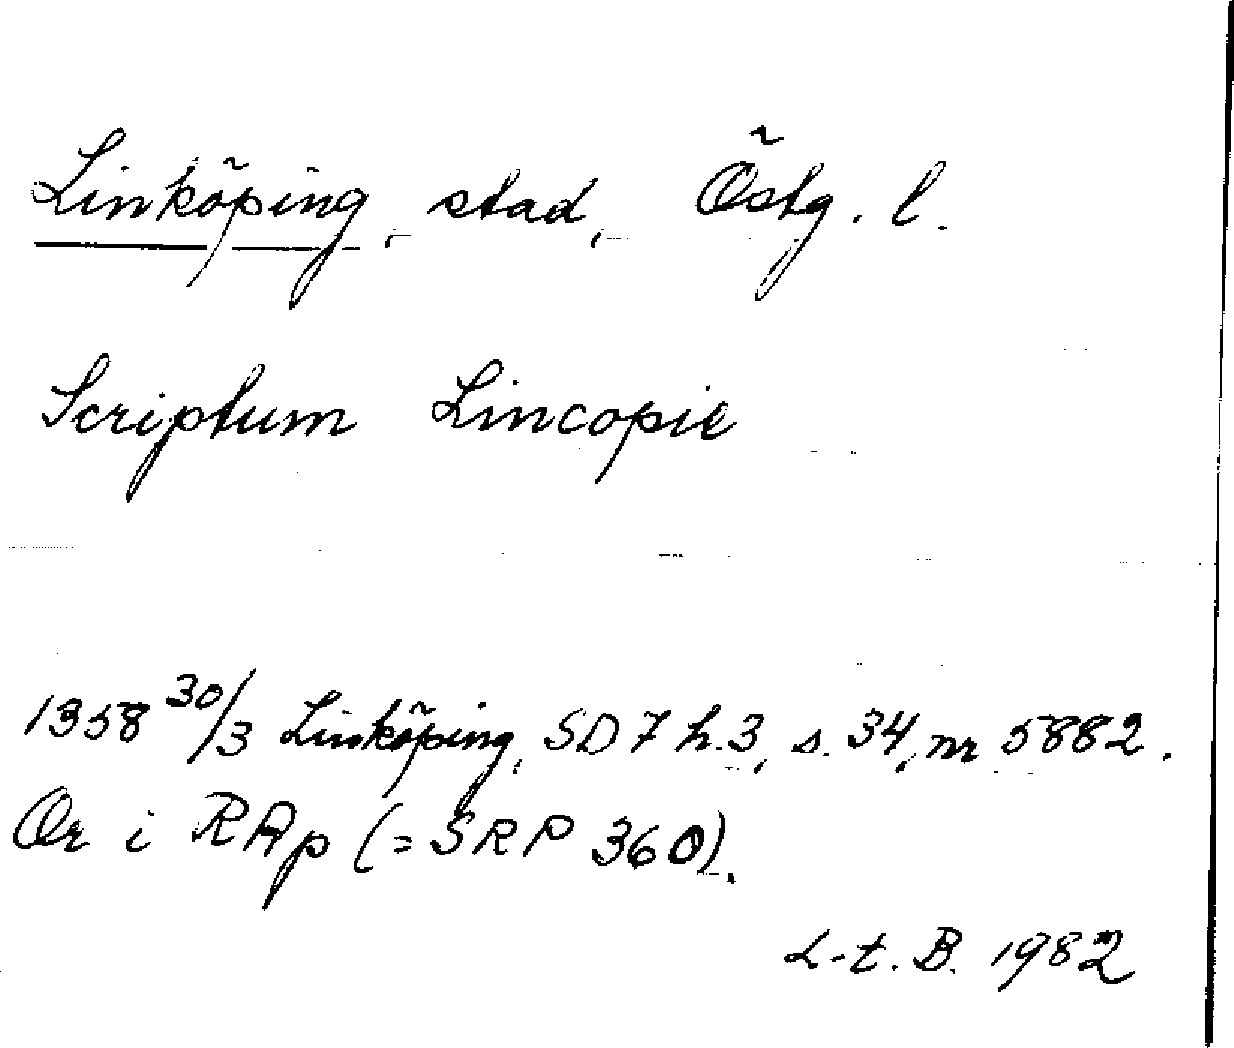 Linköping, stad, Östg. l.
Scriptum Lincopie
1358 30/3 Linköping, SD 7 h. 3, s. 34, nr 5882.
Or i RAp (= SRP 360).
L-t. B. 1982